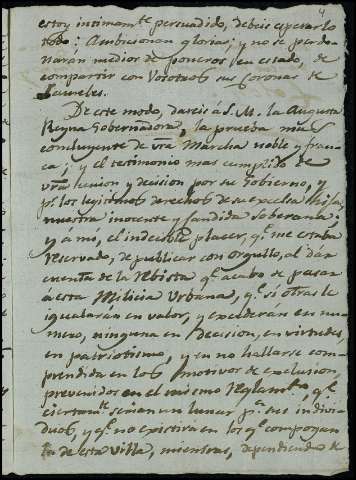 estoy intimam.te persuadido, debeis esperarlo
todo: Ambicionan glorias; y no se perdo
naran medios de poneros en estado, de
compartir con Vosotros sus Coronas de
Laureles.
De este modo, dareis á S. M. la Augusta
Reyna Gobernadora, la prueba mas
concluyente de vra. Marcha noble y fran
ca; y el testimonio mas cumplido de
vra. union y decision por su Gobierno, y
p.r los legitimos derechos de su excelsa hija,
nuestra inocente y candida soberana;
y a mi, el indecible placer, q.e me estaba
reservado, de publicar con orgullo, al dar
cuenta de la Revista q.e acabo de pasar
a esta Milicia Urbana, q.e si otras le
igualarán en valor, y excederán en nu
mero, ninguna en Decision, en virtudes,
en patriotismo, y en no hallarse com
prendida en los Motivos de exclusion,
prevenidos en el mismo Reglam.to, q.e
ciertam.te serian un lunar p.a sus indivi
duos, y q.e no existirá en los q.e compongan
la de esta Villa, mientras, dependiendo de